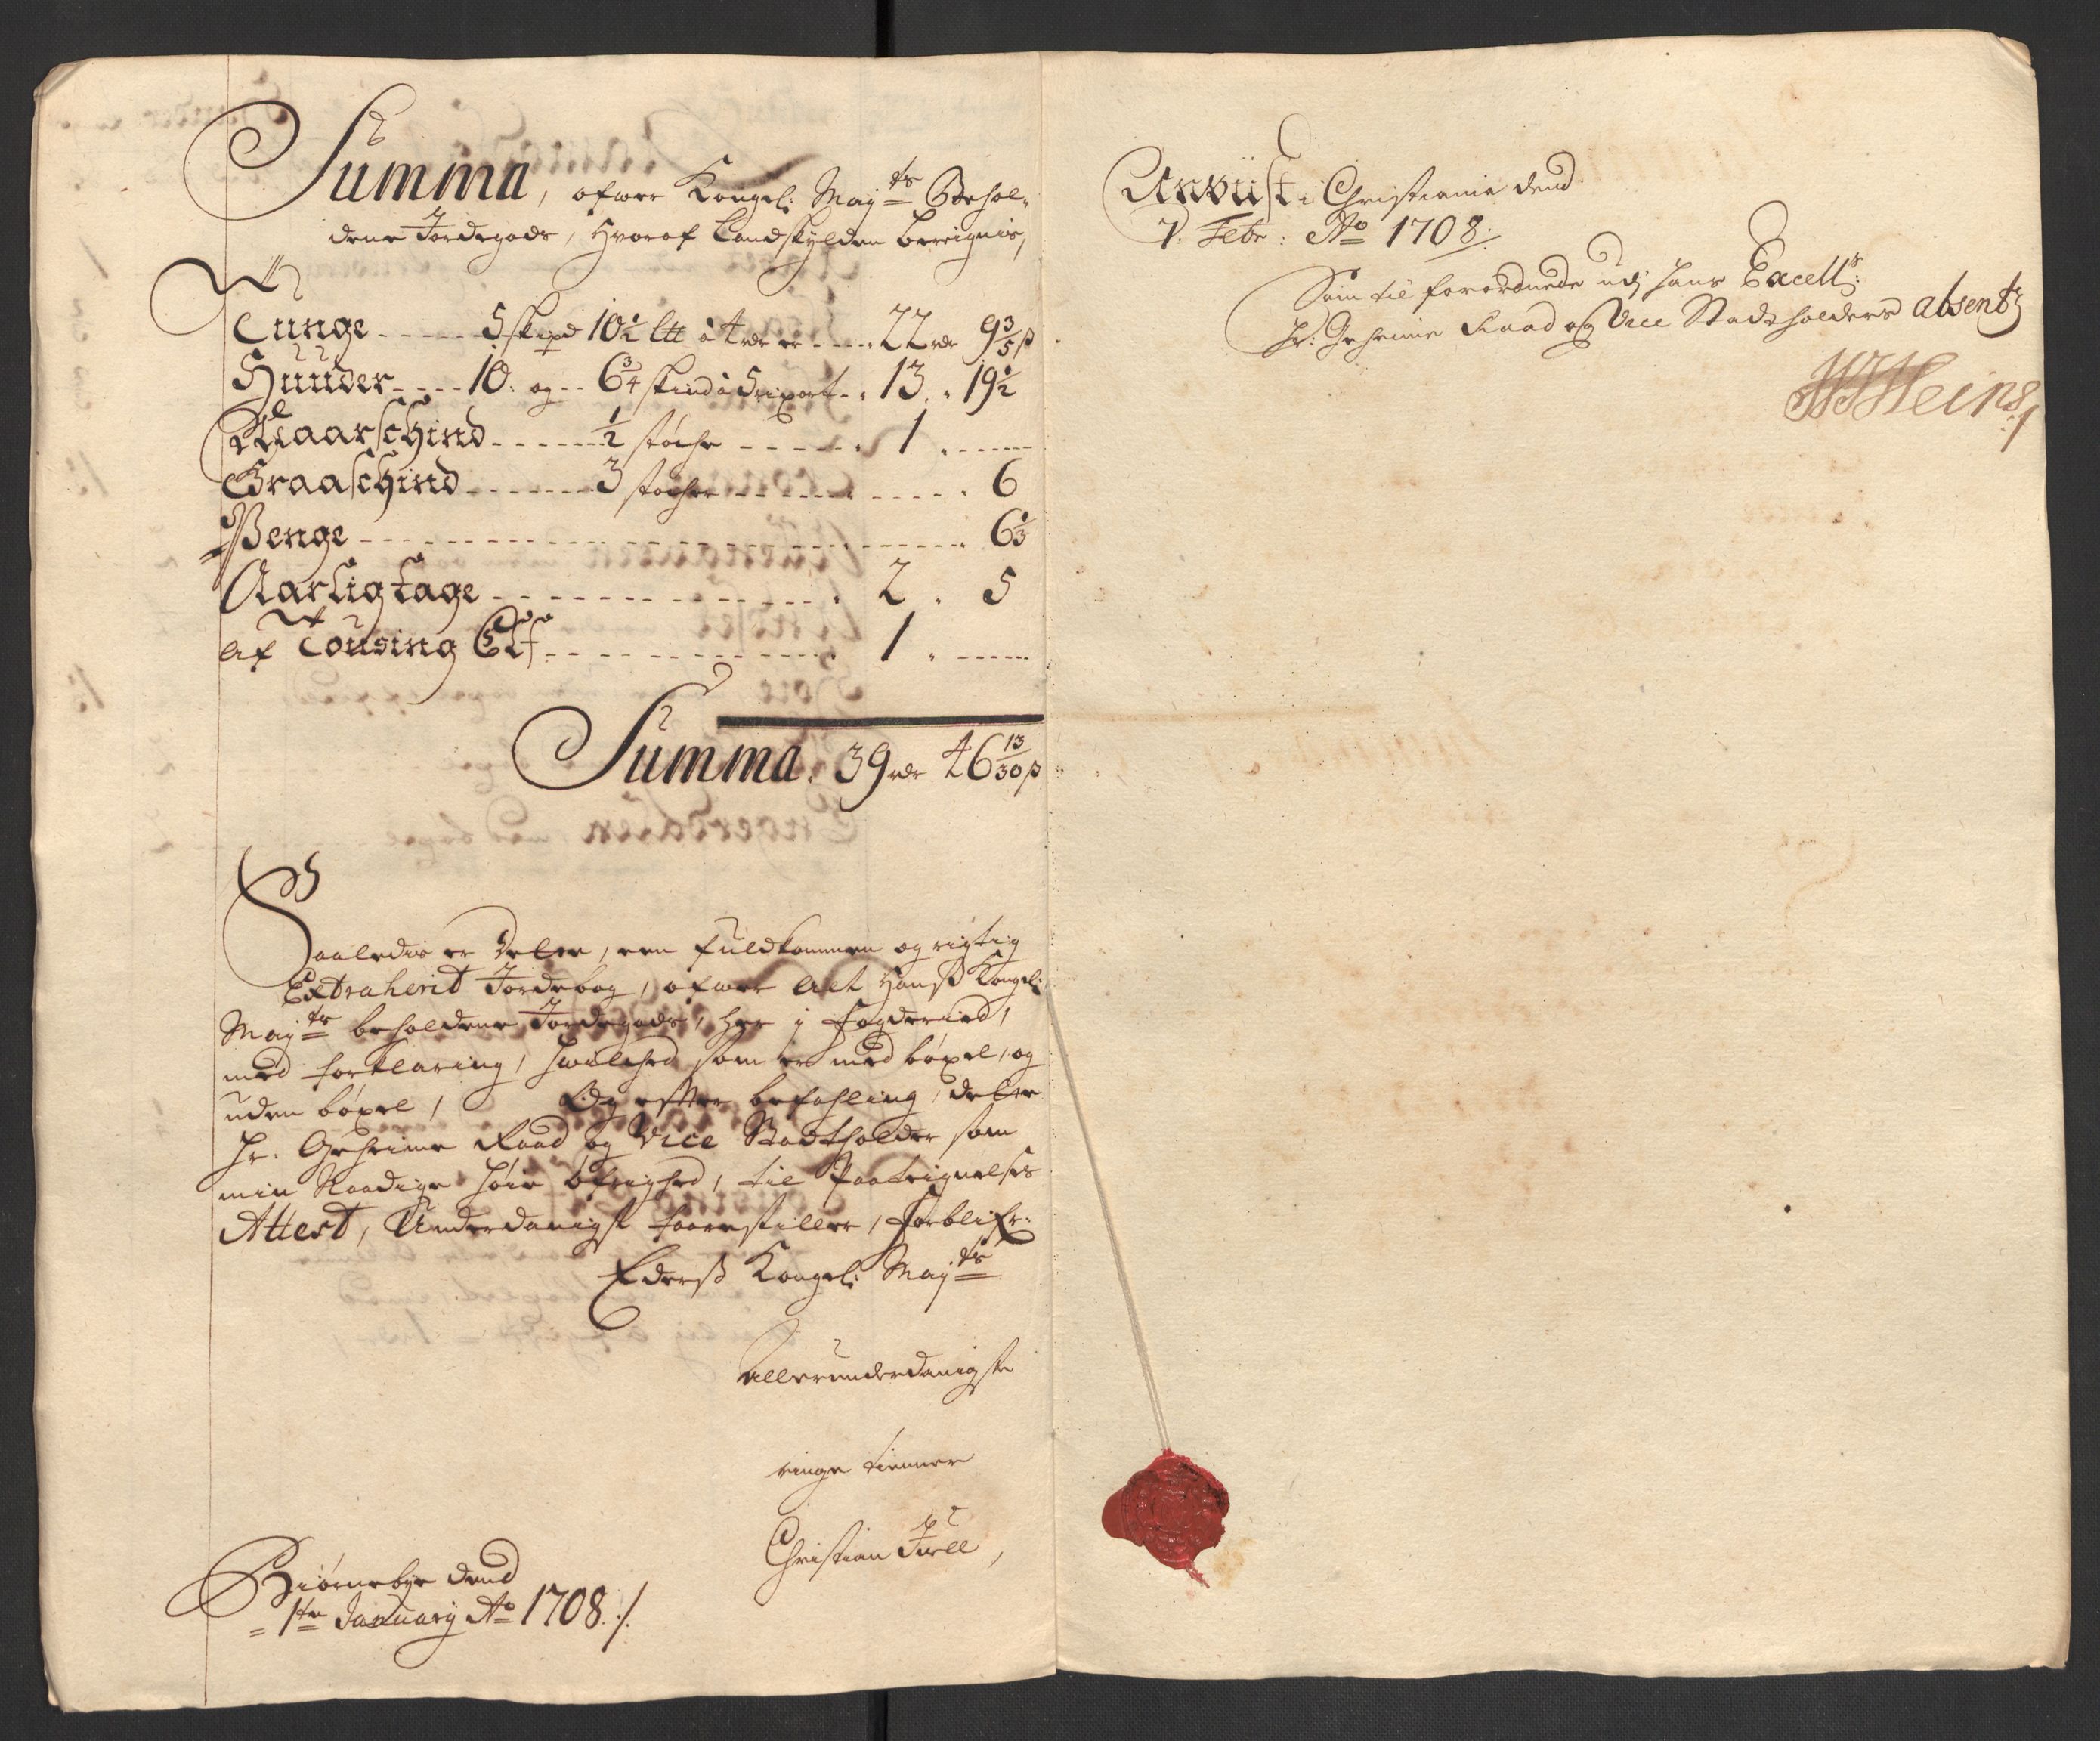 Summa, ofwer Kongel: May:ts Behol-
dene Jordegods, Hworaf Landskylden bereignis,
Tunge 5 skipd 10½ Ltt á 4 rdr er 22 rdr 9 3/5 ß
Huuder 10: og 6¾ skind á 5 rixort 13. 19½
Maarschind ½ støche 1
Graaschind 3 støcher 6
Penge 6⅓
Aarlig tage 2. 5
af Tousing Elf 1
Summa. 39 rdr 46 13/30 ß
Saaledis er dette, een fuldkommen og rigtig
Extraherit Jordebog, ofwer alt Hans Kongel:
May:ts beholdene Jordegods, her j fogderied,
med forklaring, hwilched som er med böxel, og
uden böxel, Og efter befahling, dette
Hr: Geheime Raad og Vice Stadtholder som
min Naadige høie Øfrighed, til Paateignelses
Attest, Underdanigst foerestiller, forblifr:
Eders Kongel: May:ts
allerunderdanigste
ringe tienner
Christian Juell,
Biörnebye dend
1te January Ao 1708 ./.
Anvüst i Christiania dend
7. Febr: Ao 1708.
Som til forordnede udj hans Excell:s
Hr: Geheime Raad og Vice Stadtholders absentz